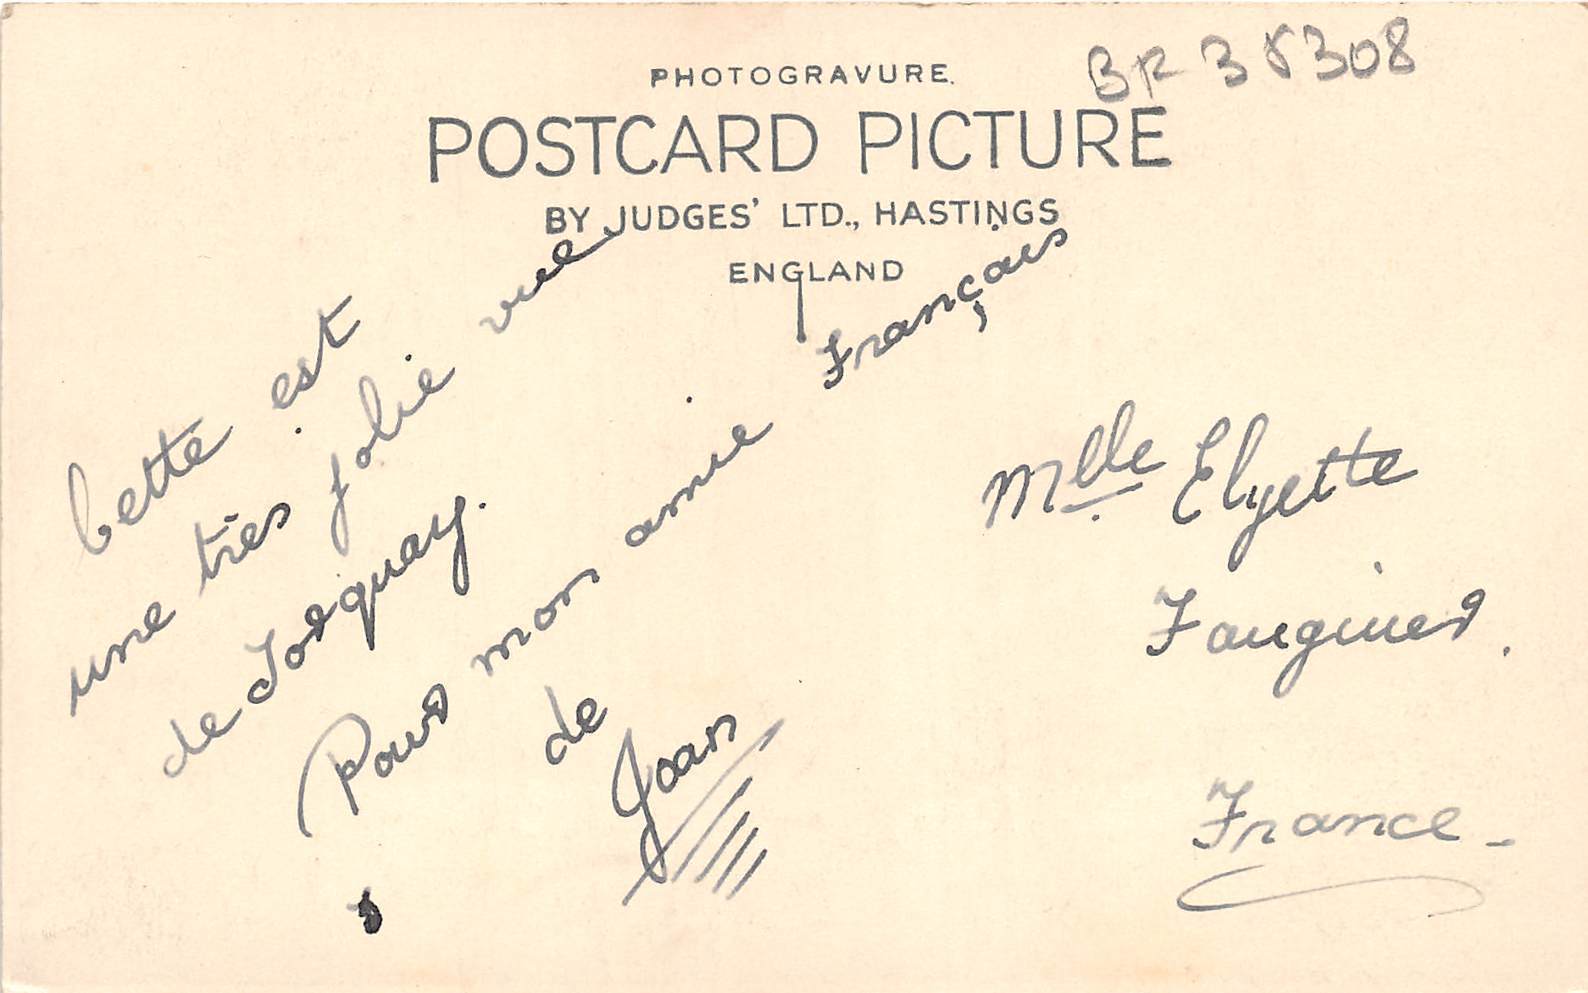 PHOTOGRAVURE.
POSTCARD PICTURE
BY JUDGES' LTD., HASTINGS
ENGLAND
BR 38308
Cette est
une très jolie vue
de Torquay.
Pour mon amie Français
de
Joan
Mlle Elyette
France -